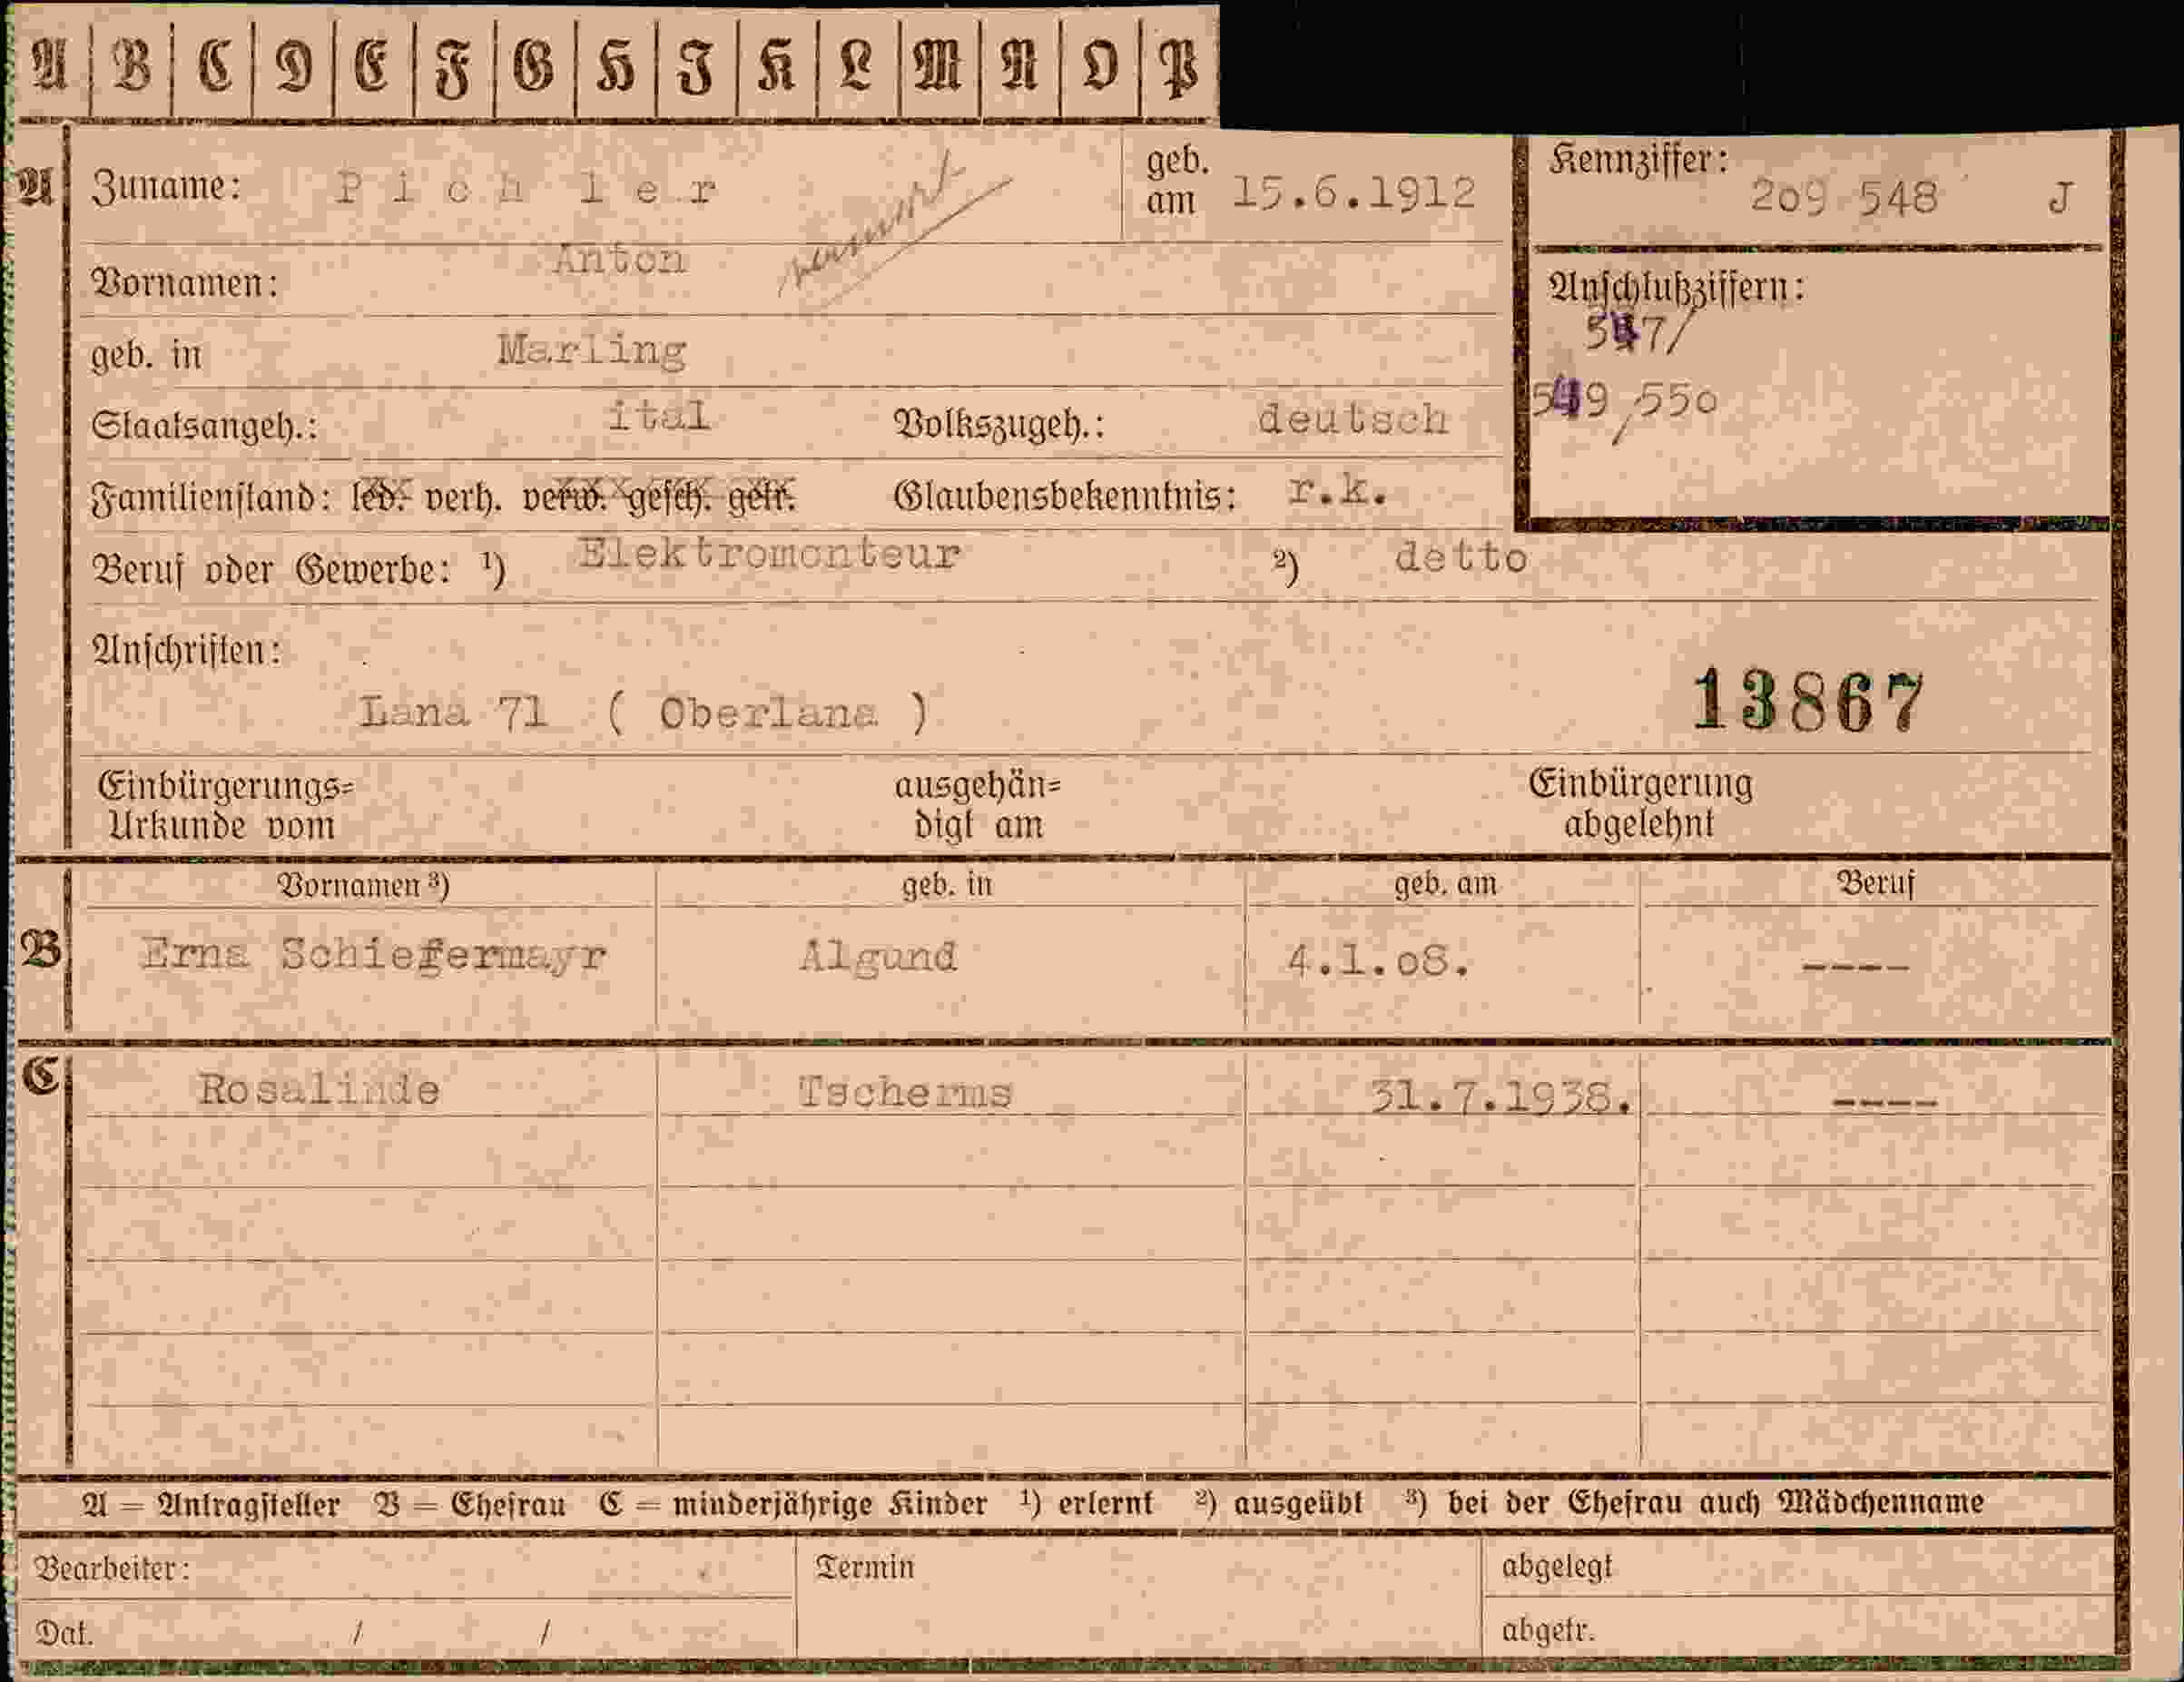 A B C D E F G H I K L M N O P
A Zuname: Pichler geb. am 15.6.1912 Kennziffer: 209 548 J
Vornamen: Anton
Anschlußziffern:
547/
549/550
geb. in Marling
Staatsangeh.: ital Volkszugeh.: deutsch
Familienstand: led. verh. verw. gesch. getr. Glaubensbekenntnis: r.k.
Beruf oder Gewerbe: ¹) Elektromonteur ²) detto
Anschriften:
Lana 71 ( Oberlana )
13867
Einbürgerungs= ausgehän= Einbürgerung
Urkunde vom digt am abgelehnt
Vornamen ³) geb. in geb. am Beruf
B Erna Schiefermayr Algund 4.1.08. ----
C Rosalinde Tscherms 31.7.1938. ----
A = Antragsteller B = Ehefrau C = minderjährige Kinder ¹) erlernt ²) ausgeübt ³) bei der Ehefrau auch Mädchenname
Bearbeiter: Termin abgelegt
Dat. / / abgetr.